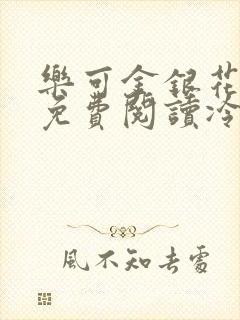 樂可金銀花
免費閱讀冷
風不知去處